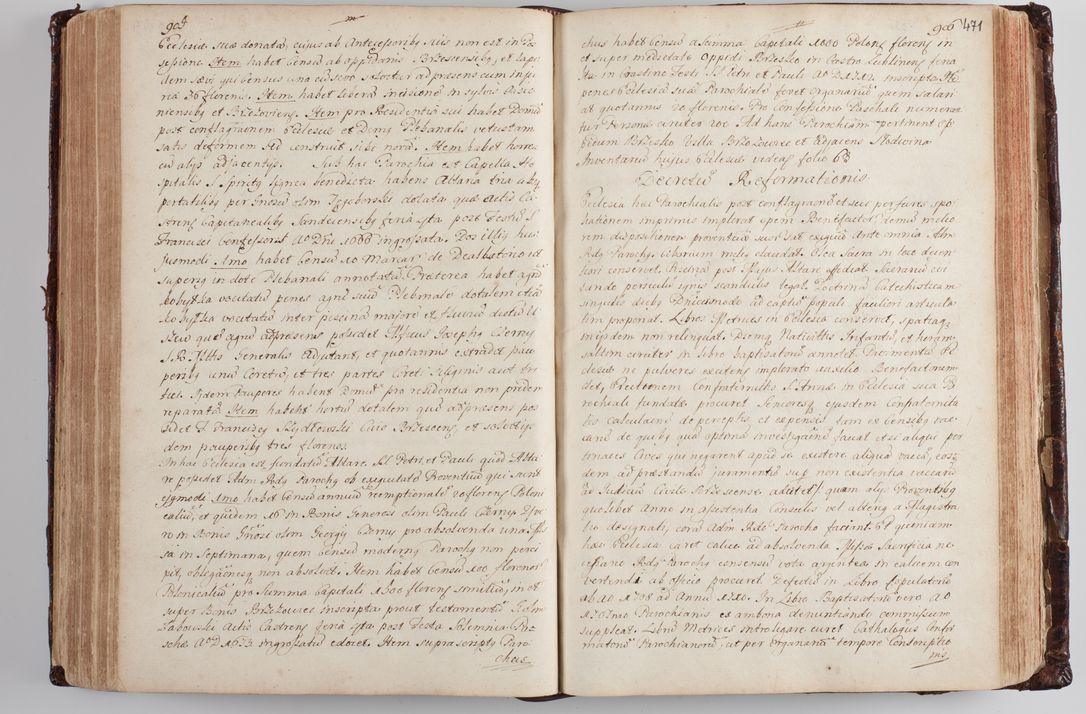 905
Ecclesiae suae donatā, cujus ab Antecessoribꝫ suis non est in Pos
sessione Item habet Censū ab oppidanis Brzescensibꝫ, et Lapi
dem
qui Census una cū sevo solvitur ad praesens cum
ria 36 florenis. Item habet liberā incisionē in sylvis Jasie
niensibꝫ et Brzezoviensi. Item pro Residentia sui habet Domū
post conflagraōnem Ecclesiae et Domꝫ Plebanalis vetustam
satis deformem sed construit sibi novā. Item habet horre
cū alijs adjacentijs. Sub hac Parochia est Capella Ho
spitalis S. Spiritꝫ lignea benedicta habens Altaria tria
portatilibꝫ per
olim
dotata quae Actis Ca
strens Capitanealibꝫ Sandecensibꝫ feria 4ta post Festū S.
Francisci Confessoris A° Dni 1666 ingrossata. Dos illiꝫ hu
jusmodi Imo habet Censū 10 Marcar. de Dealbatorio
superiꝫ in dote Plebanali annotatū. Praeterea habet agrū
Kobyłka vocitatū penes agrū suū Plebanale dotalem etiā
Kobyłka vocitatū inter piscinā majorē et fluviū dictū
quē agrū adpraesens posidet
Josephꝫ Czerny
S. R.
Generalis Adjutant, et quotannis extradet pau
peribꝫ unū Coretiū, et tres partes Coret: Siliginis aut tri
tici. Ijdem Pauperes habent Domū pro residentia non pridem
reparatā Item habent hortū dotalem quē adpraesens pos
sidet F. Franciscꝫ Szydłowski Civis Brzescens, et solvit ijs
dem pauperibꝫ tres florenos
In hac Ecclesia est fundatū Altare SS. Petri, et Pauli quod Alta
re posidet Adm Rdꝫ Parochꝫ ob exiguitatē Proventuū qui sunt
ejusmodi Imo habet Censū annuū reemptionalē 20 florenꝫ Poloni
caliū, et quidem 16 in Bonis Generosi olim Pauli Czerny
ro in Bonis Gnosi olim Georgij Czerny pro absolvenda una Mis
sa in Septimana, quem Censū modernꝫ Parochꝫ non perci
pit, obligaōnesꝫ non absolvit. Item habet Censū 100 florenor
Polonicaliū pro Summa Capitali 1500 florenꝫ similiū, in et
super Bonis Brzezowiec inscripta prout testamentū Joānis
Actis Castrens feria 4ta post Festa Solemnia Pas
chae A° D 1653 ingrossatū edocet. Item suprascriptꝫ Paro
chus
906 471
chus habet Censū a Summa Capitali 1000 Polonꝫ florenꝫ in
et super medietate Oppidi Brzesko in Castro Lublinens feria
4ta in Crastino Festi SS. Petri et Pauli A° D 1212. inscripta. Hic
penes Ecclesiā suā Parochialē fovet Organariū quem salari
at quotannis 20 florenis. Pro Confessione Paschali numeran
tur Personae circiter 200. Ad hanc Parochiam pertinent Op
pidum Brzesko Villa Brzezowiec et adjacens Słotwina
Inventariū hujus Ecclesiae videas folio 63
Decretū Reformationis.
Ecclesia haec Parochialis post conflagraōnē et sui per fures spo
liationem imprimis implorat opem Benefactorū
melio
rem dispositionem proventuū suor ut exiguū ante omnia Adm
Rdꝫ Parochꝫ Ciborium melius claudat. Olea Sacra in loco decen
tiori conservet. Piscinā post Majus Altare efficiat. Sacrariū co
burendo periculū ignis scandulis tegat. Doctrinā Catechisticam
singulis diebꝫ Dnicis modo ad captū populi faciliori articula
tim proponat. Libros Metrices in Ecclesia conservet, spatiaqꝫ
in ijsdem non relinquat. Diemqꝫ Nativittis Infantis, et horam
saltem circiter in libro Baptisatorū annotet. Pavimentū Ec
clesiae ne pulveres excitens implorato auxilio Benefactorum
det, Erectionem Confraternittis S. Annae in Ecclesia sua Pa
rochiali fundatae procuret Senioresqꝫ ejusdem Confraternita
tis calculaōnē de perceptis, et expensis tam ex Censibꝫ vac
carū de quibꝫ quā optimā investigaōnē faciat etsi aliquis per
tinaces Cives qui negarent apud se existere aliquā vaccā, eos
dem ad praestandū juramentū sup non existentia vaccarū
ad Judiciū Civile Brzescense adducet quam alijs Proventibꝫ
quolibet Anno in assistentia Consulis vel alteriꝫ a Magistra
tu designati, corā Adm Rdo Parocho faciant. Et quoniam
haec Ecclesia caret calice ad absolvenda Missae Sacrificia ne
cessario Rdꝫ Parochꝫ consensū vota argentea in calicem con
vertendi ab officio procuret. Defectus in libro Copulatorū
ab A° 1708 ad Annū 1720. In Libro Baptisatorū vero A°
1707mo Parochianis ex ambona denuntiando commissum
suppleat. Librū Metrices introligare curet Cathalogūs Confir
matorū Parochianorū, ut per Organariū tempore Conscriptio
nis